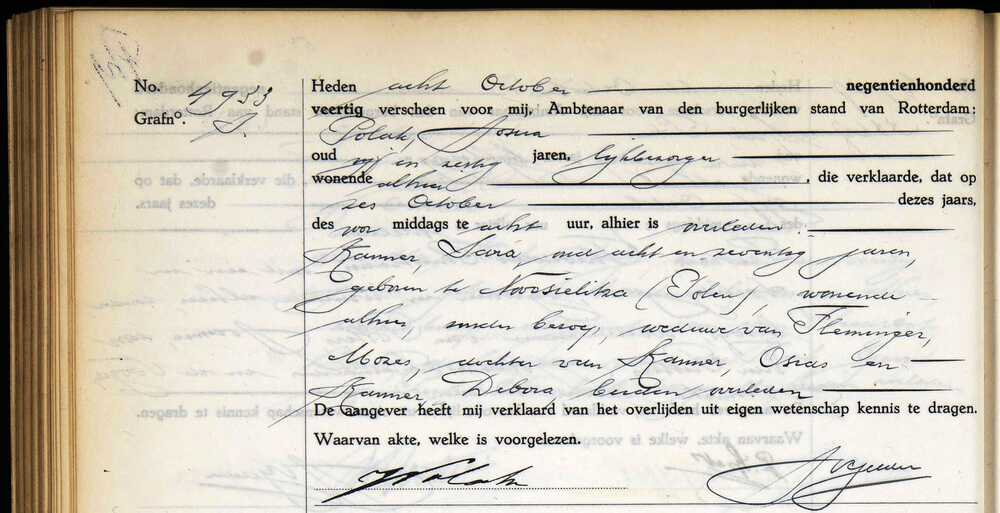 No. 4953
Grafnº.
Heden acht October negentienhonderd
veertig verscheen voor mij, Ambtenaar van den burgerlijken stand van Rotterdam:
Polak, Josua
oud vijf en zestig jaren, lijkbezorger
wonende alhier, die verklaarde, dat op
zes October dezes jaars,
des voor middags te acht uur, alhier is overleden:
Kanner, Sara, oud acht en zeventig jaren,
geboren te Novosielitza (Polen), wonende
alhier, zonder beroep, weduwe van Fleminger,
Mozes, dochter van Kanner, Osias en
Kanner, Debora, beiden overleden
De aangever heeft mij verklaard van het overlijden uit eigen wetenschap kennis te dragen.
Waarvan akte, welke is voorgelezen.
J Polak